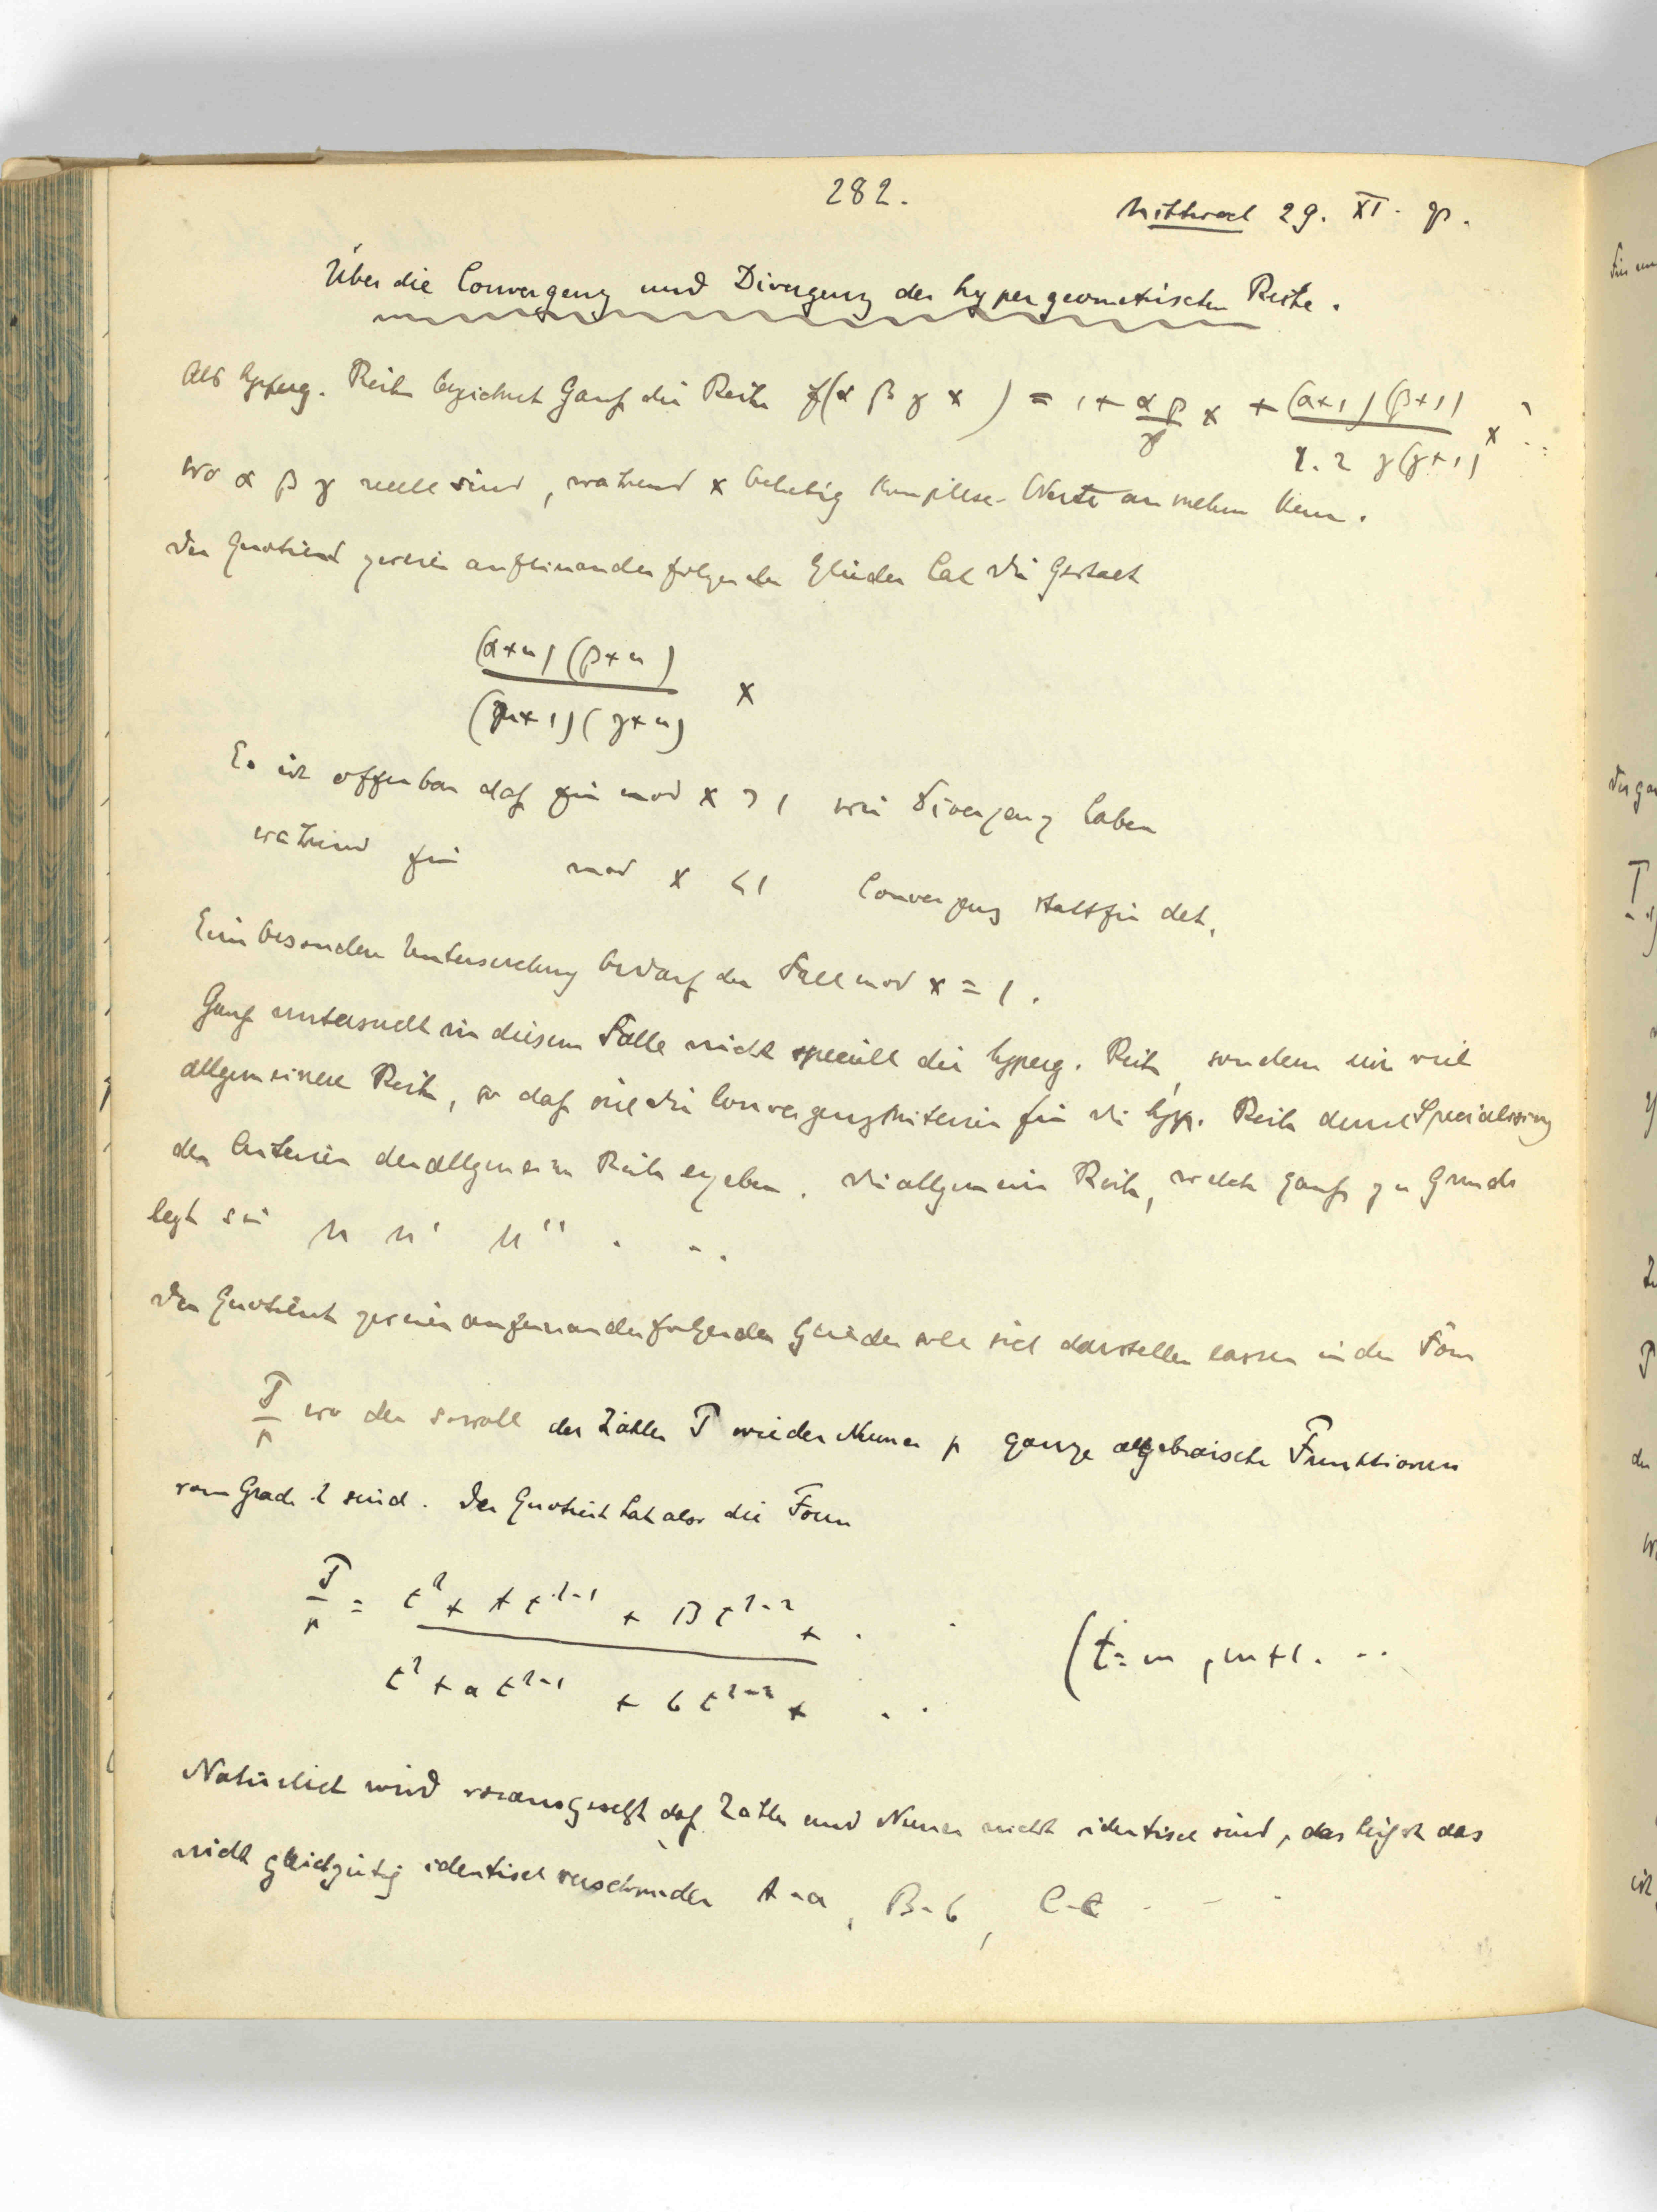 282.
Mittwoch 29. XI.
Über die Convergenz und Divergenz der hypergeometrischen Reihe.
Als hyperg. Reihe bezeichnet Gauß die Reihe f(α β γ x) = 1 + αβ/γ x + (α+1)(β+1)/1.2 γ(γ+1) x² ...
wo α β γ reell sind, während x beliebig komplexe Werte annehmen kann.
Der Quotient zweier aufeinanderfolgender Glieder hat die Gestalt
(α+n)(β+n)/(n+1)(γ+n) x
Es ist offenbar daß für mod x > 1 wir Divergenz haben
während für mod x < 1 Convergenz stattfindet.
Eine besondere Untersuchung bedarf der Fall mod x = 1.
Gauß untersucht in diesem Falle nicht speciell die hyperg. Reihe, sondern eine viel
allgemeinere Reihe, so daß sich die Convergenzkriterien für die hyp. Reihe durch Specialisirung
der Criterien der allgemeinen Reihe ergeben. Die allgemeine Reihe, welche Gauß zu Grunde
legt sei u u' u'' . . .
Der Quotient zweier aufeinanderfolgender Glieder soll sich darstellen lassen in der Form
P/p wo der sowohl der Zähler P wie der Nenner p ganze algebraische Funktionen
vom Grade λ sind. Der Quotient hat also die Form
P/p = t^λ + A t^λ-1 + B t^λ-2 + . . / t^λ + a t^λ-1 + b t^λ-2 + . . (t = m, m+1. ..
Natürlich wird vorausgesetzt daß Zähler und Nenner nicht identisch sind, das heißt das
nicht gleichzeitig identisch verschwinden A-a, B-b, C-c - - -